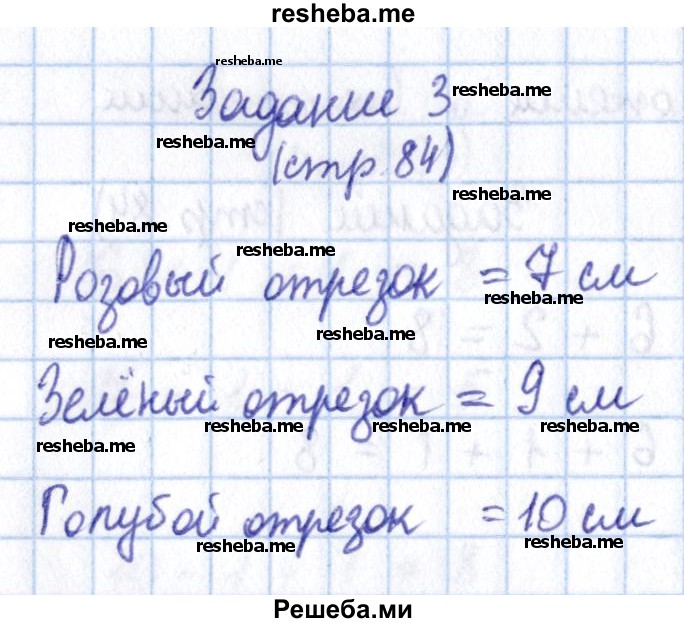 resheba.me
resheba.me
Задание 3 resheba.me
resheba.me
(стр. 84)
resheba.me
resheba.me
resheba.me
Розовый отрезок = 7 см
resheba.me
resheba.me
resheba.me
Зелёный отрезок = 9 см
resheba.me resheba.me resheba.me
resheba.me
Голубой отрезок = 10 см
resheba.me resheba.me
Решеба.ми
6 + 2 = 8
6 + 1 + 1 = 8